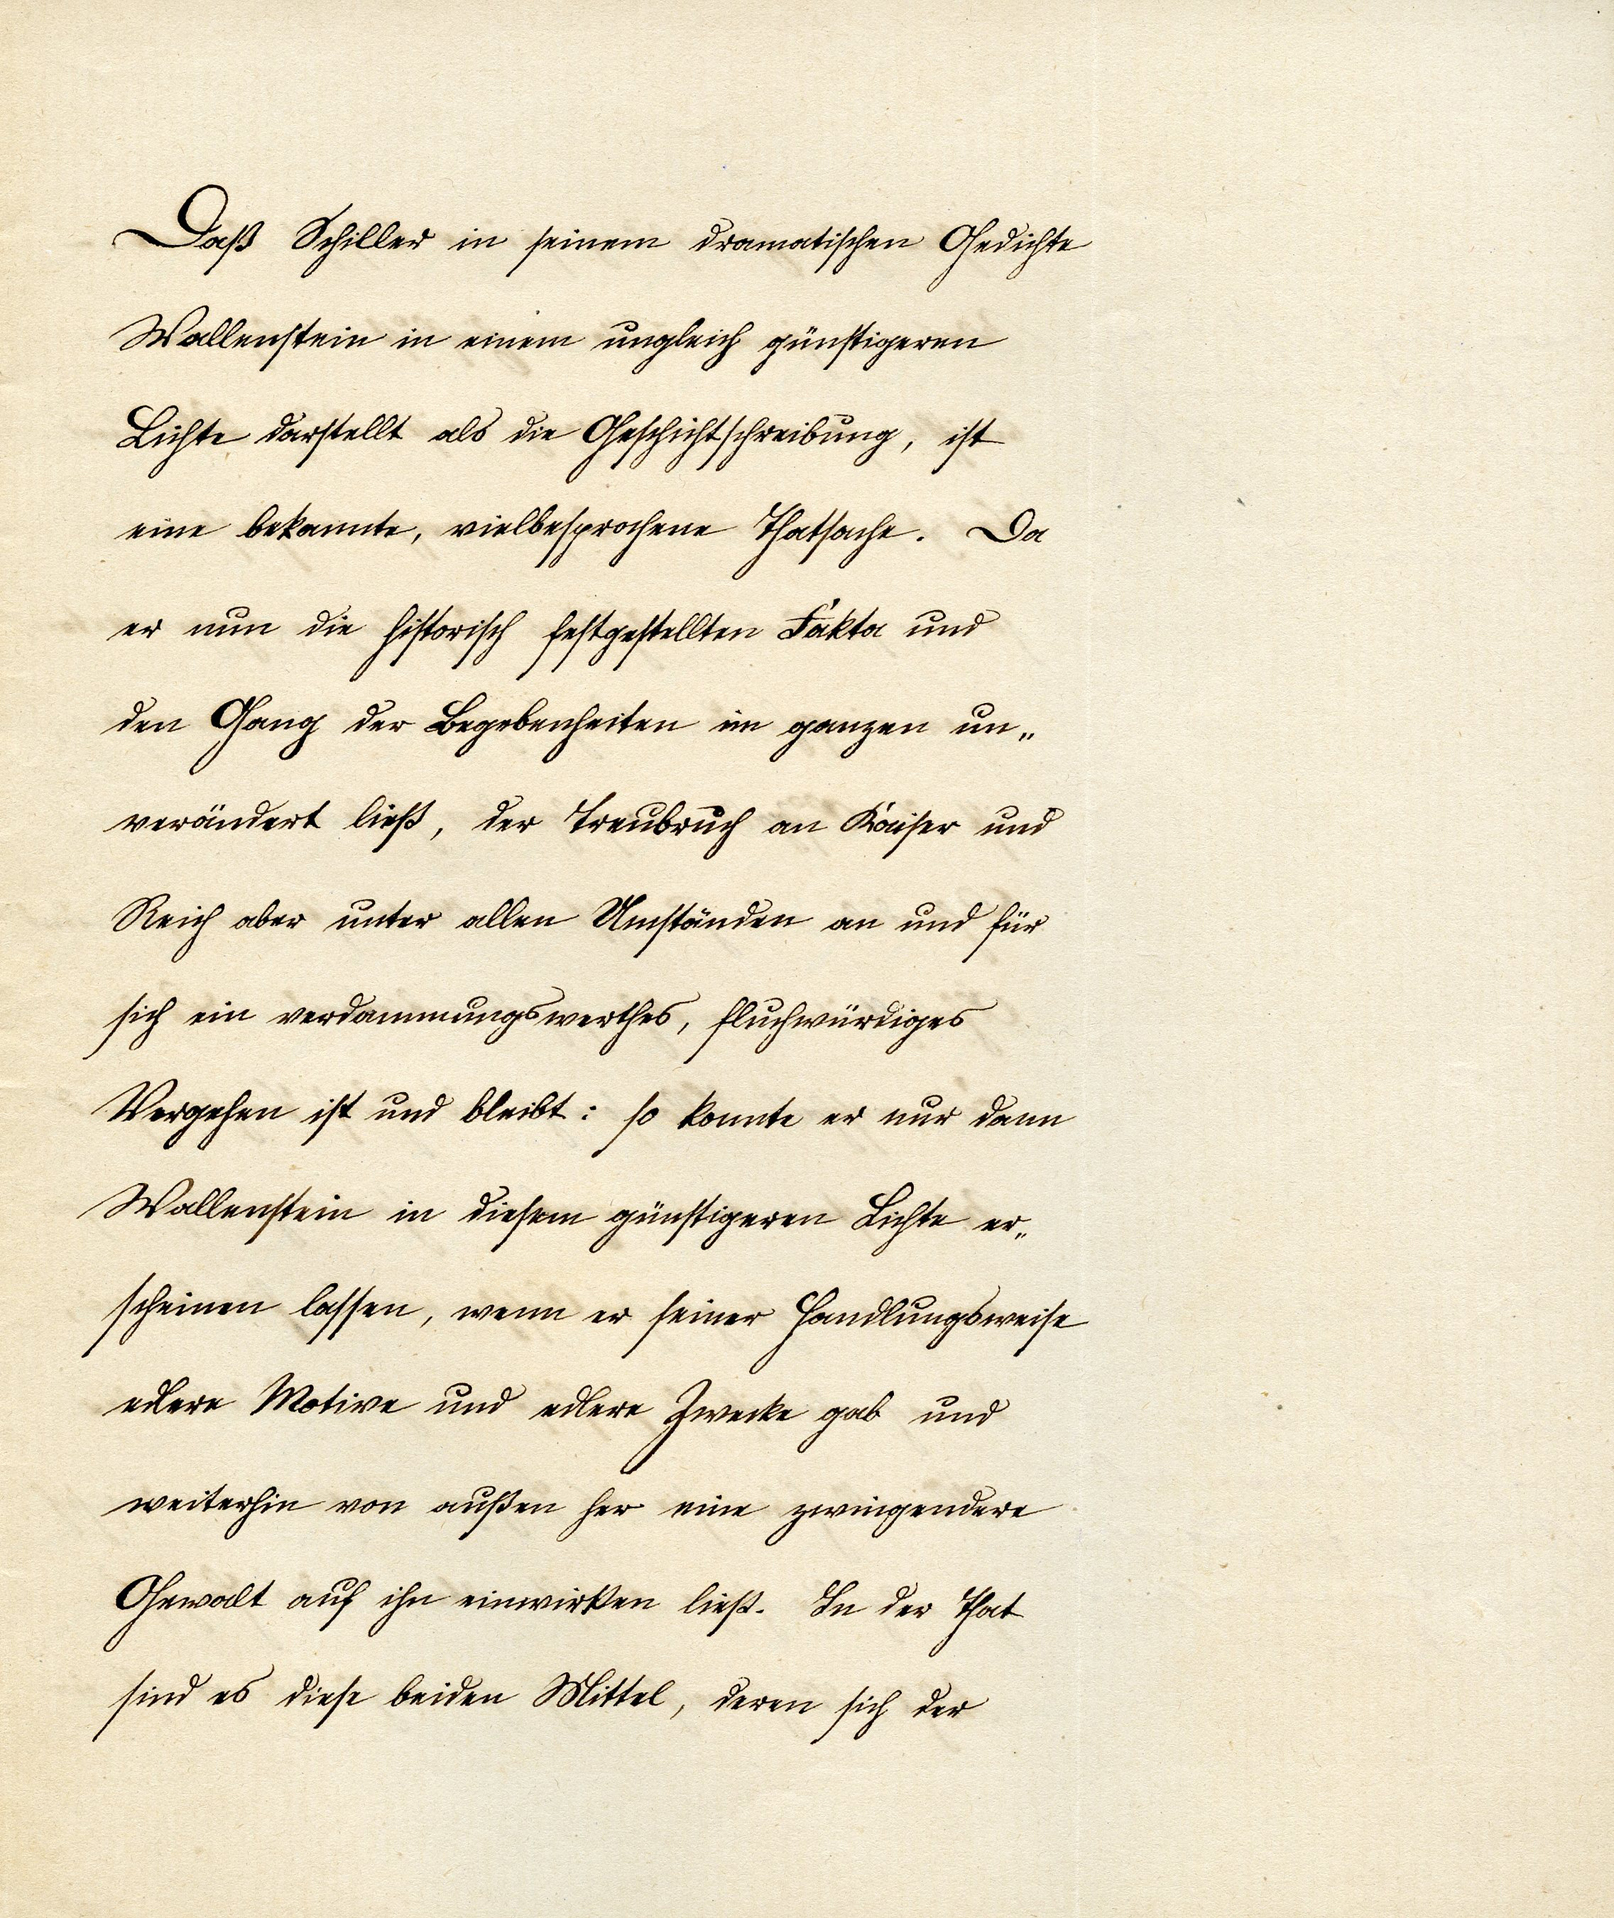 Daß Schiller in seinem dramatischen Gedichte
Wallenstein in einem ungleich günstigeren
Lichte darstellt als die Geschichtschreibung, ist
eine bekannte, vielbesprochene Thatsache. Da
er nun die historisch festgestellten Fakta und
den Gang der Begebenheiten im ganzen un„
verändert ließ, der Treubruch an Kaiser und
Reich aber unter allen Umständen an und für
sich ein verdammungswerthes, fluchwürdiges
Vergehen ist und bleibt: so konnte er nur dann
Wallenstein in diesem günstigeren Lichte er„
scheinen lassen, wenn er seiner Handlungsweise
edlere Motive und edlere Zwecke gab und
weiterhin von außen her eine zwingendere
Gewalt auf ihn einwirken ließ. In der That
sind es diese beiden Mittel, deren sich der